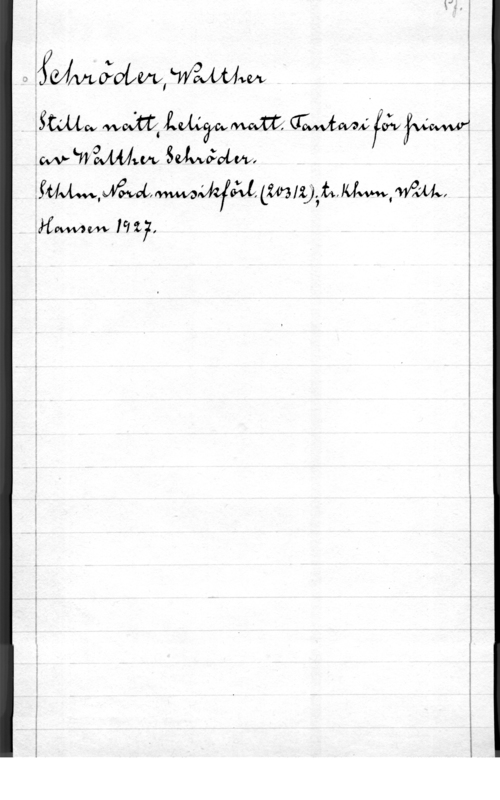 Pf.
Schröder, Walther
Stilla natt, heliga natt. Fantasi för piano
av Walther Schröder.
Sthlm, Nord. musikförl. (20312); tr. Khvn, Wilh.
Hansen 1927.